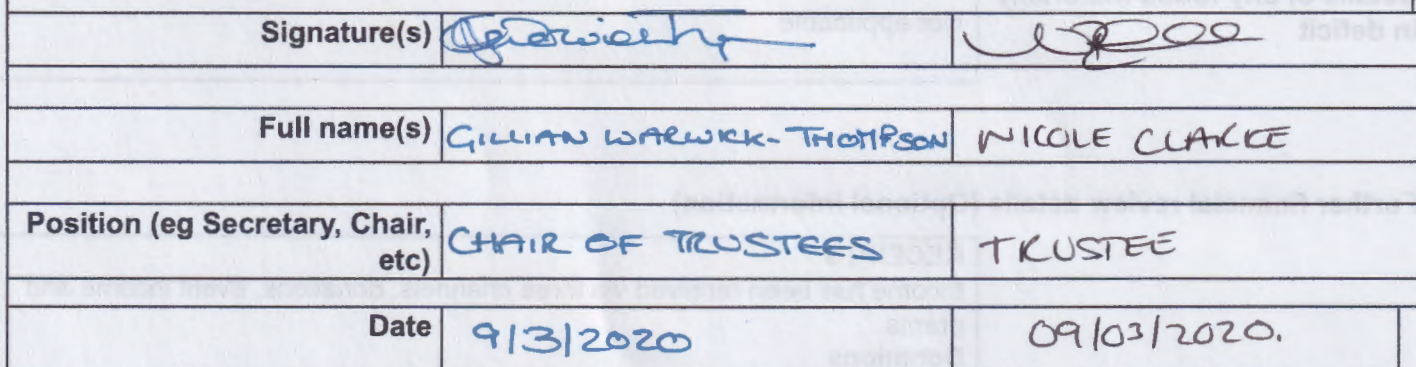 Signature(s)
Full name(s) GILLIAN WARWICK-THOMPSON NICOLE CLARKE
Position (eg Secretary, Chair, CHAIR OF TRUSTEES TRUSTEE
etc)
Date 9/3/2020 09/03/2020.